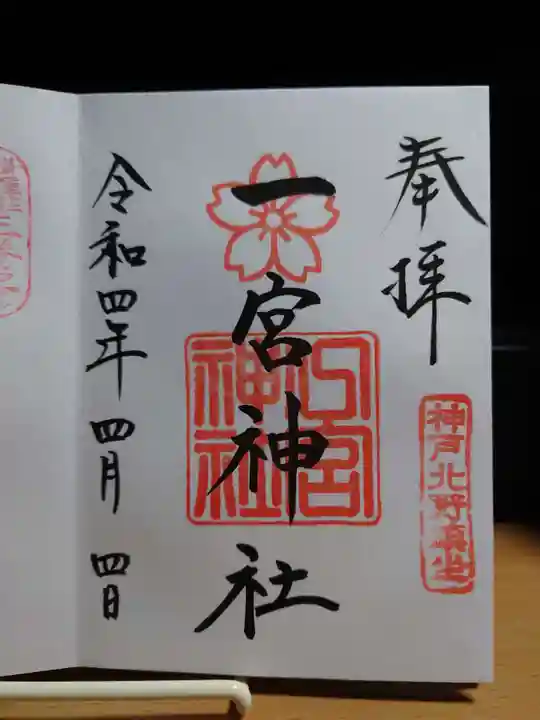 奉拝
神戸北野真生
一宮神社
一宮神社
令和四年 四月 四日